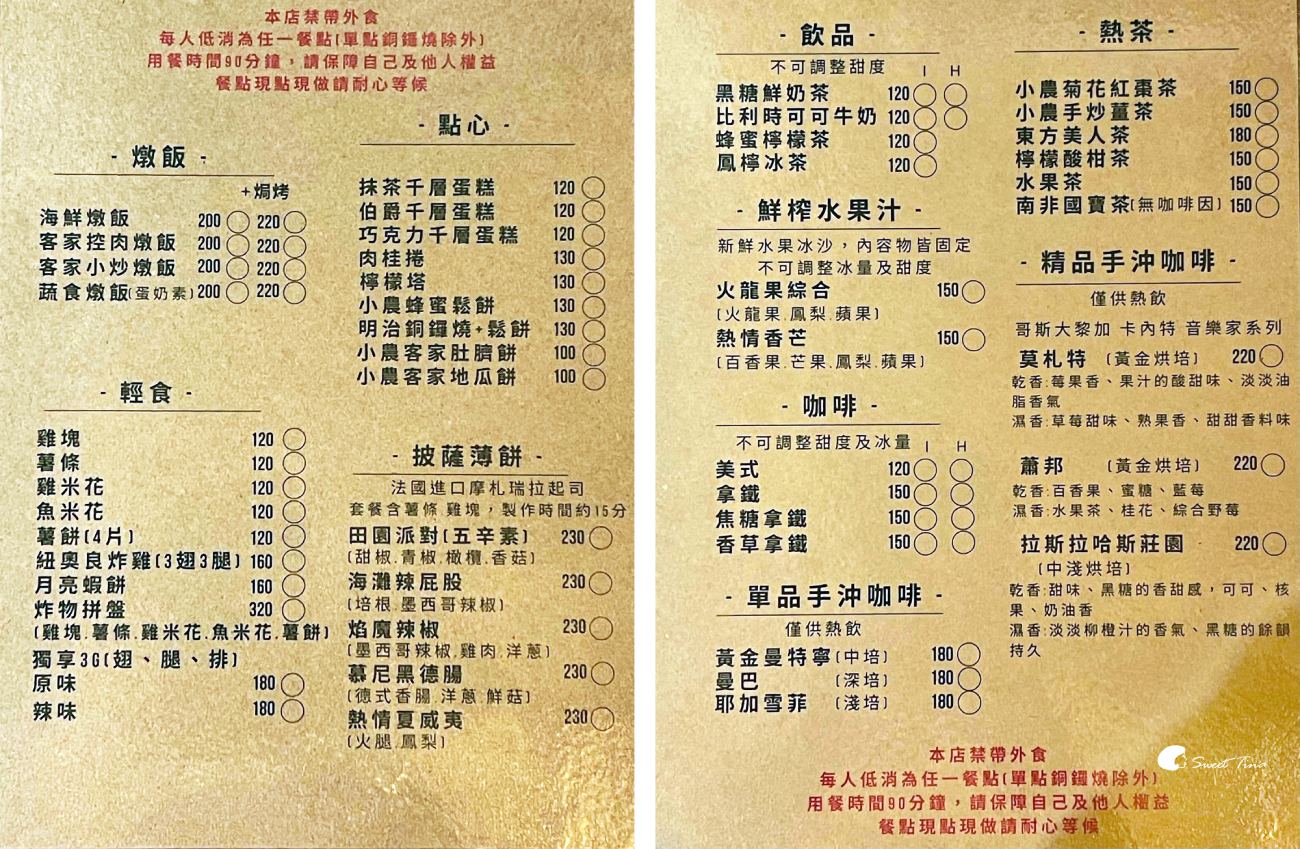 本店禁帶外食
每人低消為任一餐點(單點銅鑼燒除外)
用餐時間90分鐘，請保障自己及他人權益
餐點現點現做請耐心等候
- 燉飯 -
+焗烤
海鮮燉飯 200 220
客家控肉燉飯 200 220
客家小炒燉飯 200 220
蔬食燉飯(蛋奶素) 200 220
- 輕食 -
雞塊 120
薯條 120
雞米花 120
魚米花 120
薯餅(4片) 120
紐奧良炸雞(3翅3腿) 160
月亮蝦餅 160
炸物拼盤 320
(雞塊.薯條.雞米花.魚米花.薯餅)
獨享3G(翅、腿、排)
原味 180
辣味 180
- 點心 -
抹茶千層蛋糕 120
伯爵千層蛋糕 120
巧克力千層蛋糕 120
肉桂捲 130
檸檬塔 130
小農蜂蜜鬆餅 130
明治銅鑼燒+鬆餅 130
小農客家肚臍餅 100
小農客家地瓜餅 100
- 披薩薄餅 -
法國進口摩札瑞拉起司
套餐含薯條.雞塊，製作時間約15分
田園派對(五辛素) 230
(甜椒.青椒.橄欖.香菇)
海灘辣屁股 230
(培根.墨西哥辣椒)
焰魔辣椒 230
(墨西哥辣椒.雞肉.洋蔥)
慕尼黑德腸 230
(德式香腸.洋蔥.鮮菇)
熱情夏威夷 230
(火腿.鳳梨)
- 飲品 -
不可調整甜度 I H
黑糖鮮奶茶 120
比利時可可牛奶 120
蜂蜜檸檬茶 120
鳳檸冰茶 120
- 鮮榨水果汁 -
新鮮水果冰沙，內容物皆固定
不可調整冰量及甜度
火龍果綜合 150
(火龍果.鳳梨.蘋果)
熱情香芒 150
(百香果.芒果.鳳梨.蘋果)
- 咖啡 -
不可調整甜度及冰量 I H
美式 120
拿鐵 150
焦糖拿鐵 150
香草拿鐵 150
- 單品手沖咖啡 -
僅供熱飲
黃金曼特寧(中培) 180
曼巴 (深培) 180
耶加雪菲 (淺培) 180
- 熱茶 -
小農菊花紅棗茶 150
小農手炒薑茶 150
東方美人茶 180
檸檬酸柑茶 150
水果茶 150
南非國寶茶(無咖啡因) 150
- 精品手沖咖啡 -
僅供熱飲
哥斯大黎加 卡內特 音樂家系列
莫札特 (黃金烘培) 220
乾香:莓果香、果汁的酸甜味、淡淡油
脂香氣
濕香:草莓甜味、熟果香、甜甜香料味
蕭邦 (黃金烘培) 220
乾香:百香果、蜜糖、藍莓
濕香:水果茶、桂花、綜合野莓
拉斯拉哈斯莊園 220
(中淺烘培)
乾香:甜味、黑糖的香甜感，可可、核
果、奶油香
濕香:淡淡柳橙汁的香氣、黑糖的餘韻
持久
Sweet Tina
本店禁帶外食
每人低消為任一餐點(單點銅鑼燒除外)
用餐時間90分鐘，請保障自己及他人權益
餐點現點現做請耐心等候